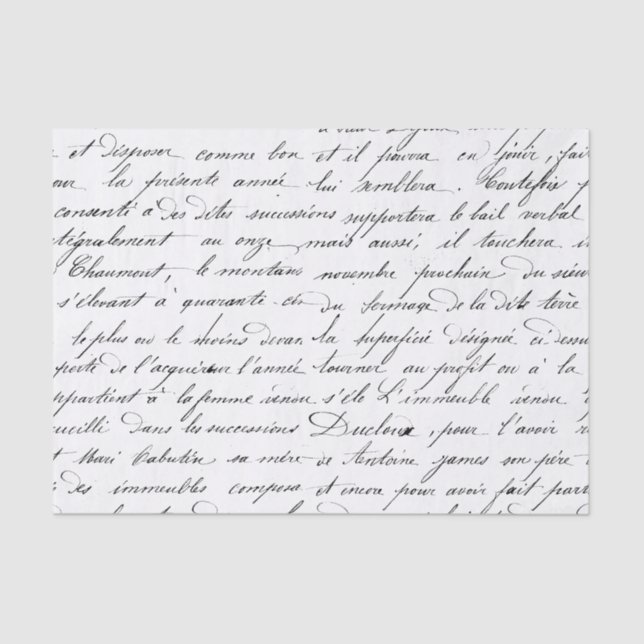 et Disposer comme bon et il pourra en jouir, fai
our la présente année lui semblera. Toutefois
consenti a des dites successions supportera le bail verbal
tégralement au onze mais aussi, il touchera i
Chaumont, le montans novembre prochain du sieu
s'élevant à quarante du fermage de la dite terre
le plus ou le moins devan la superficié désignée ci dessu
porte de l'acquéreur l'année tourner au profit ou à la
ppartient à la femme vendu s'éle L'immeuble vendu
cueilli Dans les successions Ducloux, pour l'avoir r
t Mari Cabutin sa mère de Antoine james son père
des immeubles composa et encore pour avoir fait part